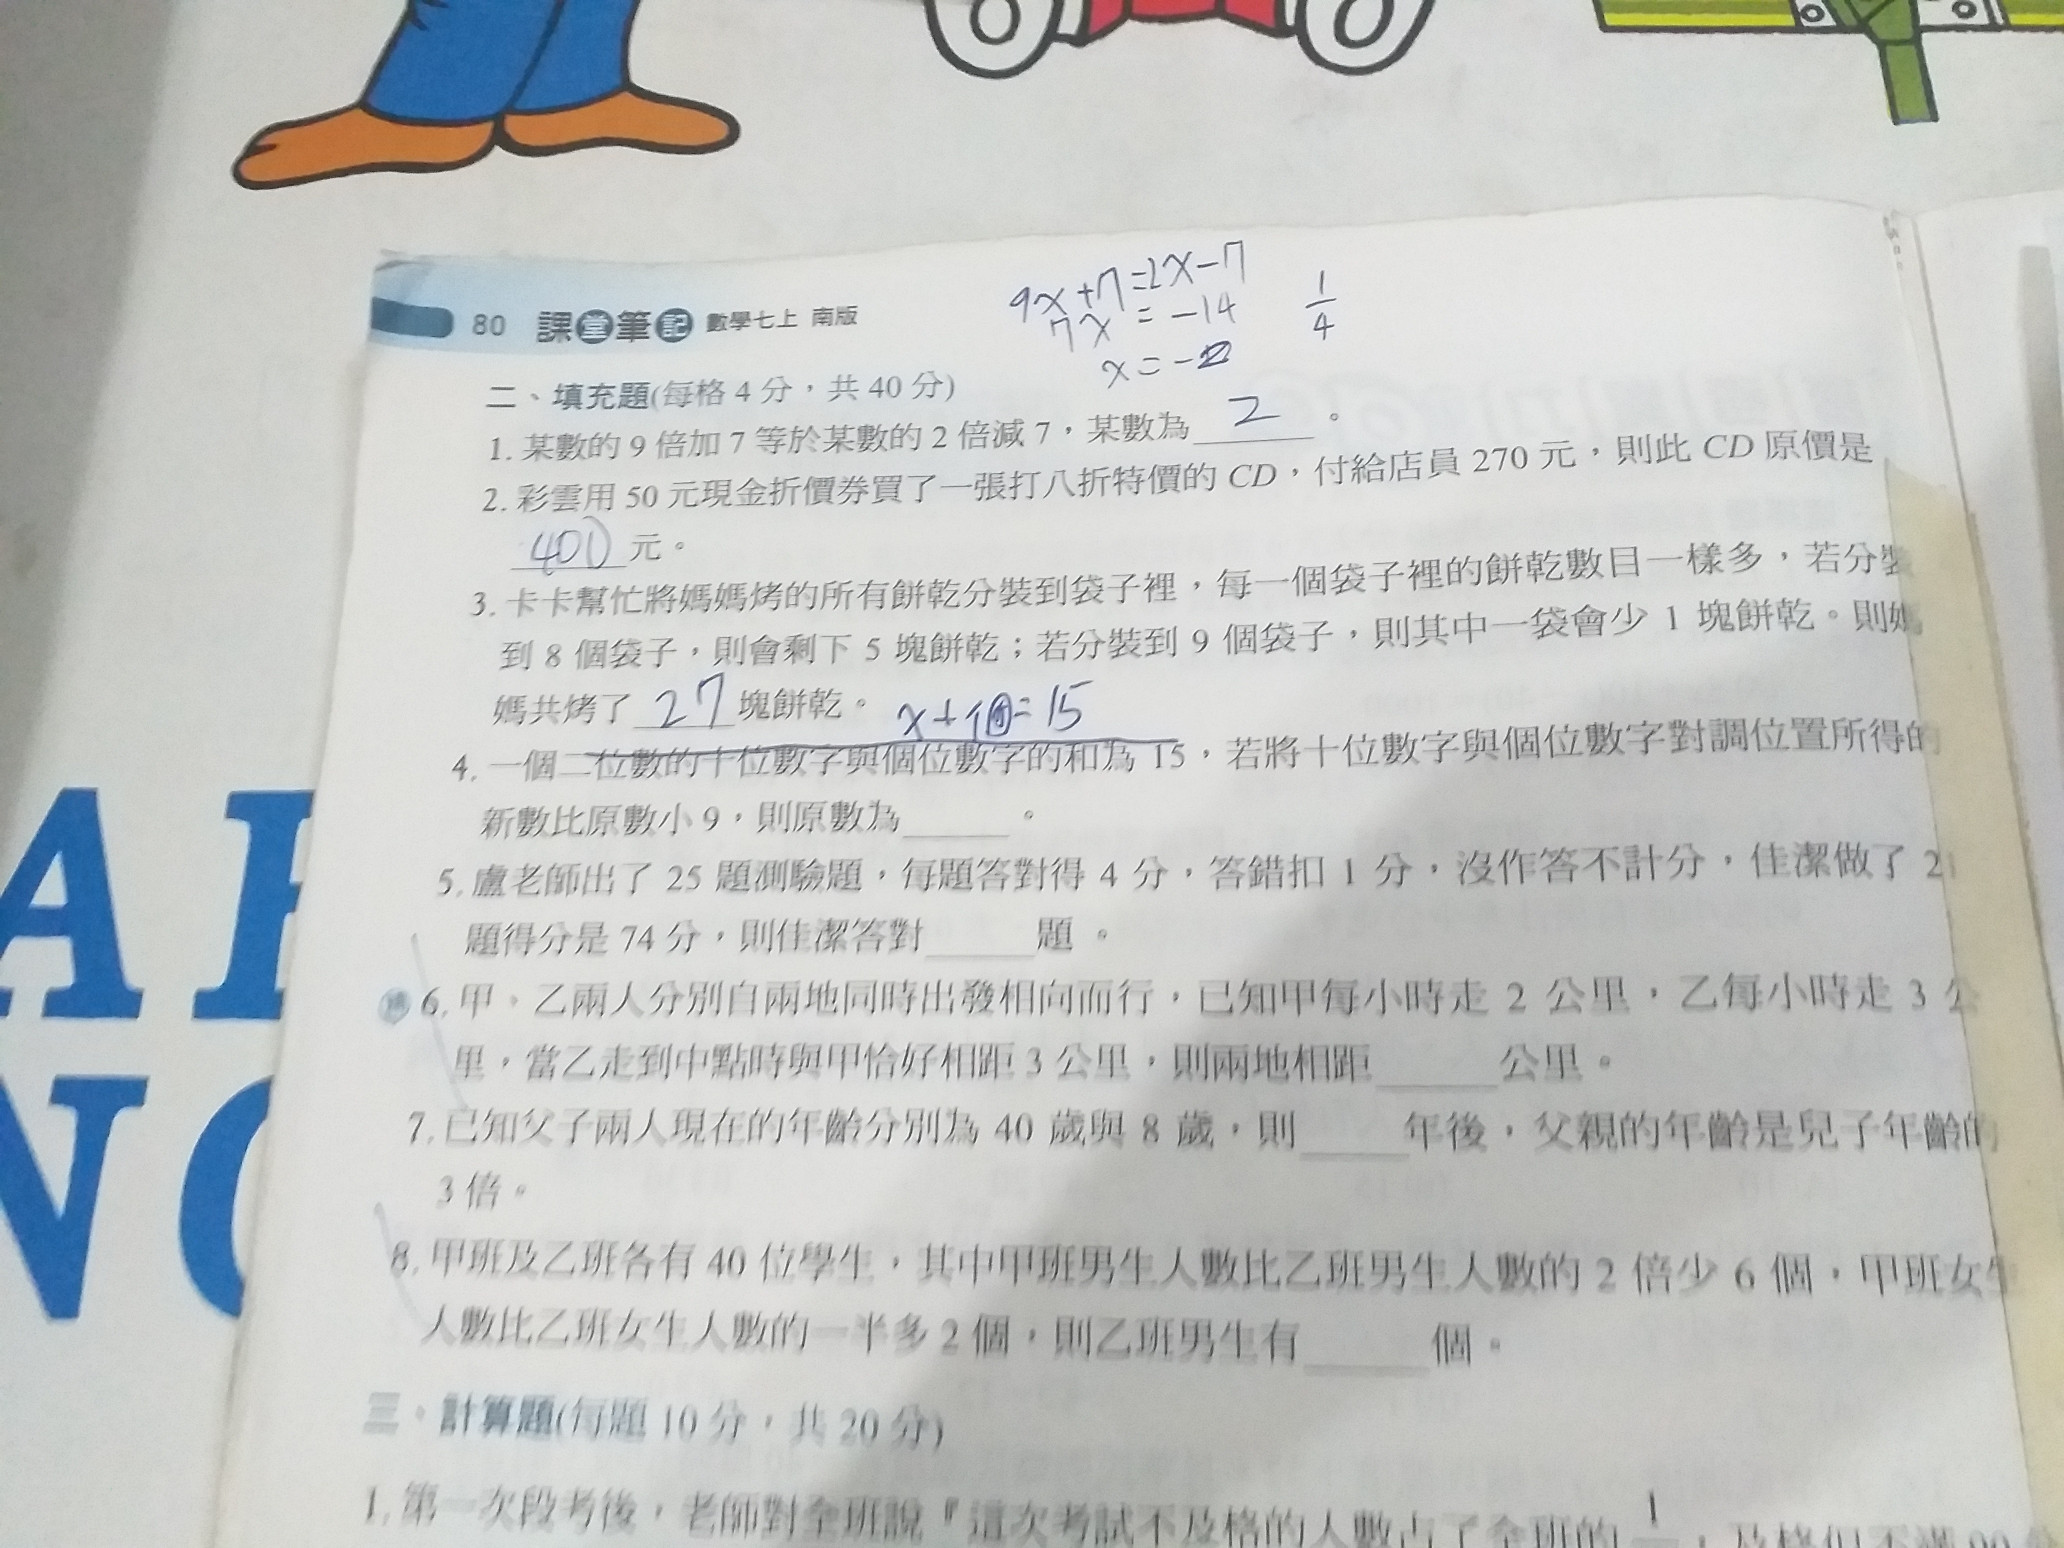 9x+7=2x-7
7x = -14
x=-2
1/4
80 課堂筆記 數學七上 南版
二、填充題(每格 4 分，共 40 分)
1. 某數的 9 倍加 7 等於某數的 2 倍減 7，某數為 2 。
2. 彩雲用 50 元現金折價券買了一張打八折特價的 CD，付給店員 270 元，則此 CD 原價是
400 元。
3. 卡卡幫忙將媽媽烤的所有餅乾分裝到袋子裡，每一個袋子裡的餅乾數目一樣多，若分裝
到 8 個袋子，則會剩下 5 塊餅乾；若分裝到 9 個袋子，則其中一袋會少 1 塊餅乾。則媽
媽共烤了 27 塊餅乾。
4. 一個二位數的十位數字與個位數字的和為 15，若將十位數字與個位數字對調位置所得的
新數比原數小 9，則原數為 。
5. 盧老師出了 25 題測驗題，每題答對得 4 分，答錯扣 1 分，沒作答不計分，佳潔做了
題得分是 74 分，則佳潔答對 題。
6. 甲、乙兩人分別自兩地同時出發相向而行，已知甲每小時走 2 公里，乙每小時走 3 公
里，當乙走到中點時與甲恰好相距 3 公里，則兩地相距 公里。
7. 已知父子兩人現在的年齡分別為 40 歲與 8 歲，則 年後，父親的年齡是兒子年齡的
3 倍。
8. 甲班及乙班各有 40 位學生，其中甲班男生人數比乙班男生人數的 2 倍少 6 個，甲班女生
人數比乙班女生人數的一半多 2 個，則乙班男生有 個。
三、計算題(每題 10 分，共 20 分)
1. 第一次段考後，老師對全班說『這次考試不及格的人數占了全班的